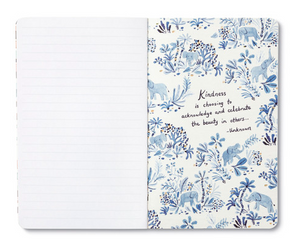 Kindness
is choosing to
acknowledge and celebrate
the beauty in others...
-Unknown